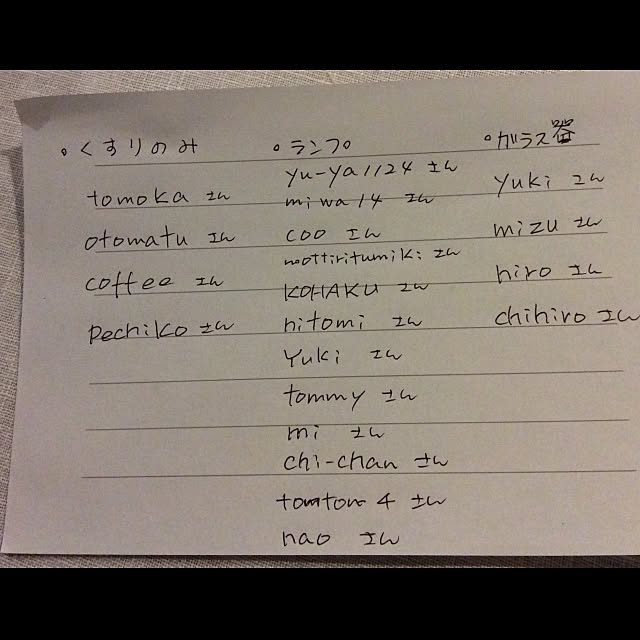 。くすりのみ
tomoka さん
otomatu さん
coffee さん
pechiko さん
。ランプ
yu-ya1124 さん
miwa14 さん
coo さん
mottiritumiki さん
KOHAKU さん
hitomi さん
Yuki さん
tommy さん
mi さん
chi-chan さん
tomtom 4 さん
nao さん
。ガラス器
Yuki さん
mizu さん
hiro さん
chihiro さん